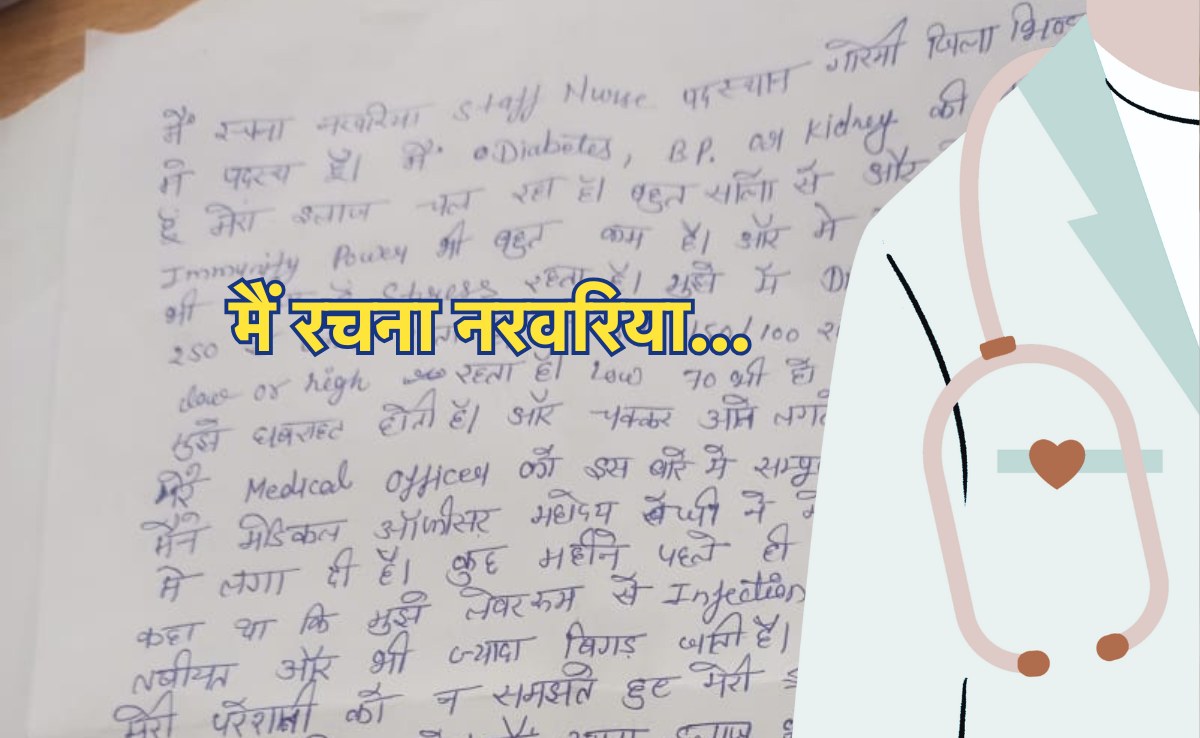 मैं रचना नरवरिया Staff Nurse पदस्थान गोरमी जिला भिण्ड
मे पदस्थ हूँ। मैं Diabetes, B.P. or Kidney की
हूं मेरा इलाज चल रहा है। बहुत सालों से और
Immunity Power भी बहुत कम है। और मे
भी Stress रहता है। मुझे मे
मैं रचना नरवरिया...
250 150/100
low or high रहता है। Low 70 भी हो
मुझे घबराहट होती है। और चक्कर आने लगते
मेरे Medical Officer को इस बारे मे
मैने मेडिकल ऑफीसर महोदय ने
मे लगा दी है। कुछ महीने पहले ही
कहा था कि मुझे लेबर रूम से Injection
तबीयत और भी ज्यादा बिगड़ जाती है।
मेरी परेशानी को न समझते हुए मेरी